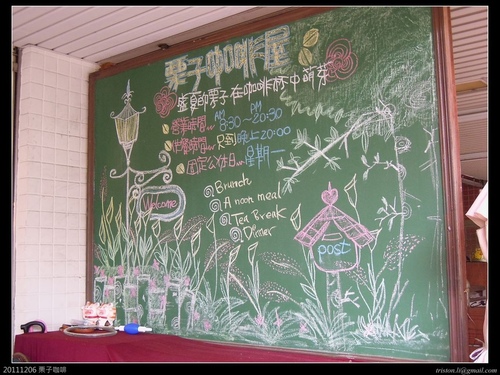 栗子咖啡屋
盛夏的栗子在咖啡杯中萌芽
營業時間 AM 8:30~PM 20:30
供餐時間 只到晚上20:00
固定公休日 星期一
Brunch
A noon meal
Tea Break
Dinner
Welcome
post
20111206 栗子咖啡
triston.li@gmail.com